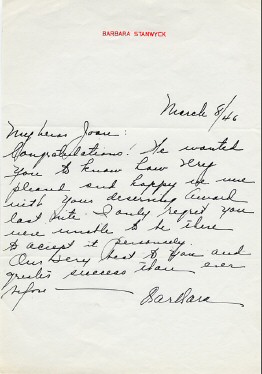 BARBARA STANWYCK
March 8/46
My dear Joan:
Congratulations! We wanted
you to know how very
pleased and happy we were
with your deserving award
last nite. I only regret you
were unable to be there
to accept it personally.
Our very best to you and
greater success than ever
before —
Barbara